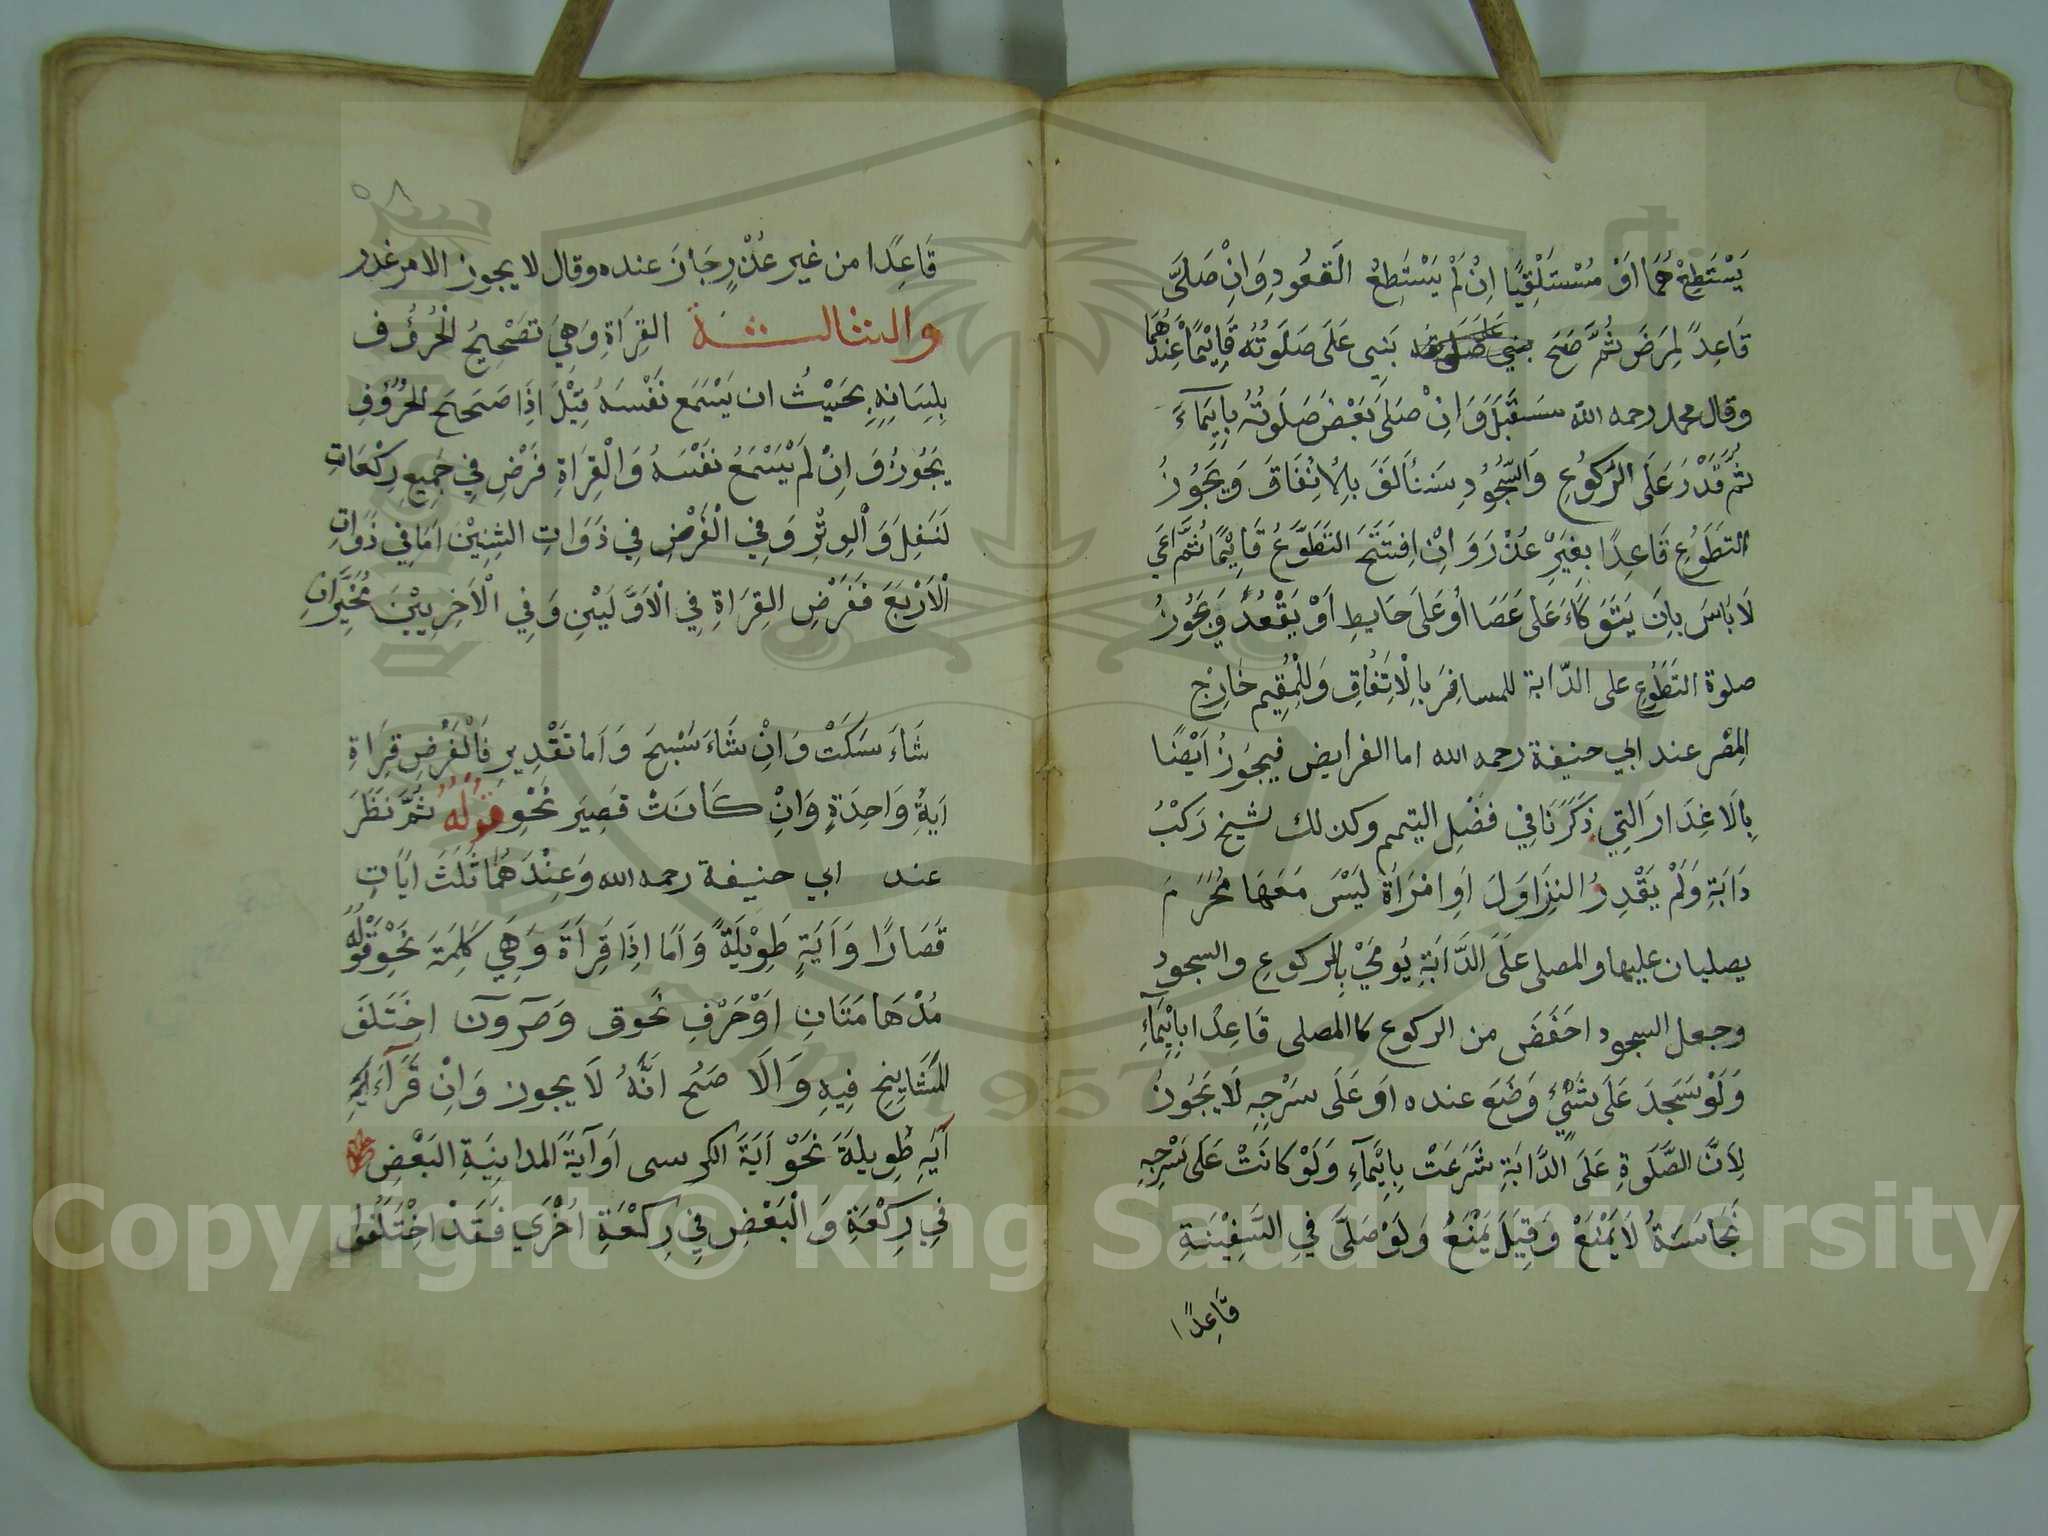 يَسْتَطِعْ هُمَا اَوْ مُسْتَلْقِيًا اِنْ لَمْ يَسْتَطِعْ القعُودِ وَاِنْ صَلَّى
قَاعِدً لِمَرَضَ ثُمَّ صَحَ بَنِى عَلَى صَلَوتُهُ قَايْمًا عِنْدَهُمَا
وقال محمد رحمه الله سَتَقْبَلَ وَاِنْ صَلَى بَعْضَ صَلَوتُهُ بِاِيمَآءَ
ثُمَّ قَدَرَ عَلَى الرَكوُعِ وَالسُّجُودِ سَتَأنَفَ بِالْاِتِفَاقَ وَيَجُوزُ
التَطَوُعِ قَاعِدًا بِغَيْرِ عُذْرَ وَاِنْ اِفتَتَحَ التَطَوَّعُ قَايْمًا ثُمَّ اعى
لَا بَاسَ بِاِنَ يَتَوَكَاءَ عَلَى عَصَا اَوْ عَلَى حَايطِ اَوْ يَقْعُدُ وَيَجُوزُ
صلوة التَطَوُعِ على الدّابة للمسافِرَ بِالْاِتِفُاقِ وَلِلْمُقِيم خَارِجْ
المِصْر عند ابي حنيفة رحمه الله اما الفرايض فيجَوزُ اَيْضًا
بِالَاعِدَار الَتِي ذَكَرْنَا فِي فصْلِ التيمم وكذلك شيخ رَكبْ
دَابَةِ وَلَمْ يَقْدِرُ النِزَاوَلَ اَوِ امْرَاَةَ ليَسْ مَعَهَا مُحْرَمَ
يصليان عليها والمصلى عَلَى الدَّابَةِ يُومِيْ بِالركوعِ والسجود
وجعل السجود اخَفَضَ من الركوع كاالمصلى قَاعِدًا بِاِيْمَآءِ
وَلَوْ سَجَدَ عَلَى شَيْءٍ وَضَعَ عنده اَوْ عَلَى سَرْجِهِ لَا يَجُوزُ
لِاَنَّ الصَّلَوةِ عَلَى الدَّابَةِ شَرَعَتْ بِاِيْمَآءِ وَلَوْ كانَتْ عَلَى سَرْجِهِ
نَجَاسَةُ لَا يَمْنَعْ وَقِيَلَ يَمْنَعُ وَلَوْ صَلَّى فيِ السَّفِيْنَةِ
قَاعِدًا
٥٨
قَاعِدًا من غير عُذْرٍ جَازَ عنده وقال لا يجوز الا من غدر
والثالثة القِرَاةِ وَهِيَ تصَحْيِحُ الْحُرُوُف
بِلِسَانِهِ بِحَيْثُ ان يَسْمَعَ نَفْسَهُ قِيْلَ اِذَا صَحَحَ الْحُرُوُفِ
يَجُوزُ وَاِنْ لَمْ يَسْمَعُ نَفْسَهُ وَالْقِرَاةِ فَرْضِ فِي جَمِيعِ رِكْعَاتِ
لَنَفِلَ وَالْوِتْرِ وَفِي الْفَرْضِ فِي ذَوَاتِ الثِنِيْنَ اَمَا فِي ذَوَاتِ
الْاَرْبَعَ فَفَرْضِ القِرَاةِ فِي الْاَوَّلَيْنِ وَفِي الْاَخِرِيْيَنَ مُخَيَّرَانِ
شَاءَ سَكَتْ وَاِنْ شَاءَ سَبْحَ وَاَما تَقْدِيرِ فَاَلْفَرْضِ قِرَاةِ
اَيَةُِ وَاحِدَةٍ وَاِنْ كَانَتْ قصَيِرَ نَحْوِ قَوُلُهُ ثُمَّ نَظَرَ
عند ابي حنيفة رحمه الله وَعِنْدَهُمَا ثَلَثَ اَيَاتِ
قَصَارًا وَاَيَةٍ طَوِيْلَةً وَاَمَا اِذَا قِرَاةَ وَهِيَ كَلِمَةَ نَحْوِ قَوْلُهُ
مُدْهَامَتَانِ اَوْ حَرْفِ نَحوق وَصۤ وَنۤ اختَلَفَ
المَشَايِخ فِيِهِ وَالَا صَحُ اَنَّهُ لَا يجوز وَاِنْ قَرَآءَ
آيَهِ طَوِيلَةَ نَحْوْ اَيَةَ الكرسى اَوْ آيَةَ المداينَةِ البَعْضِ
فِي رِكْعَةِ وَالْبَعْضِ فِي رِكْعَةِ اُخْرَي فَقَدْ اخْتَلَفُوا
Copyright © King Saud University
1957